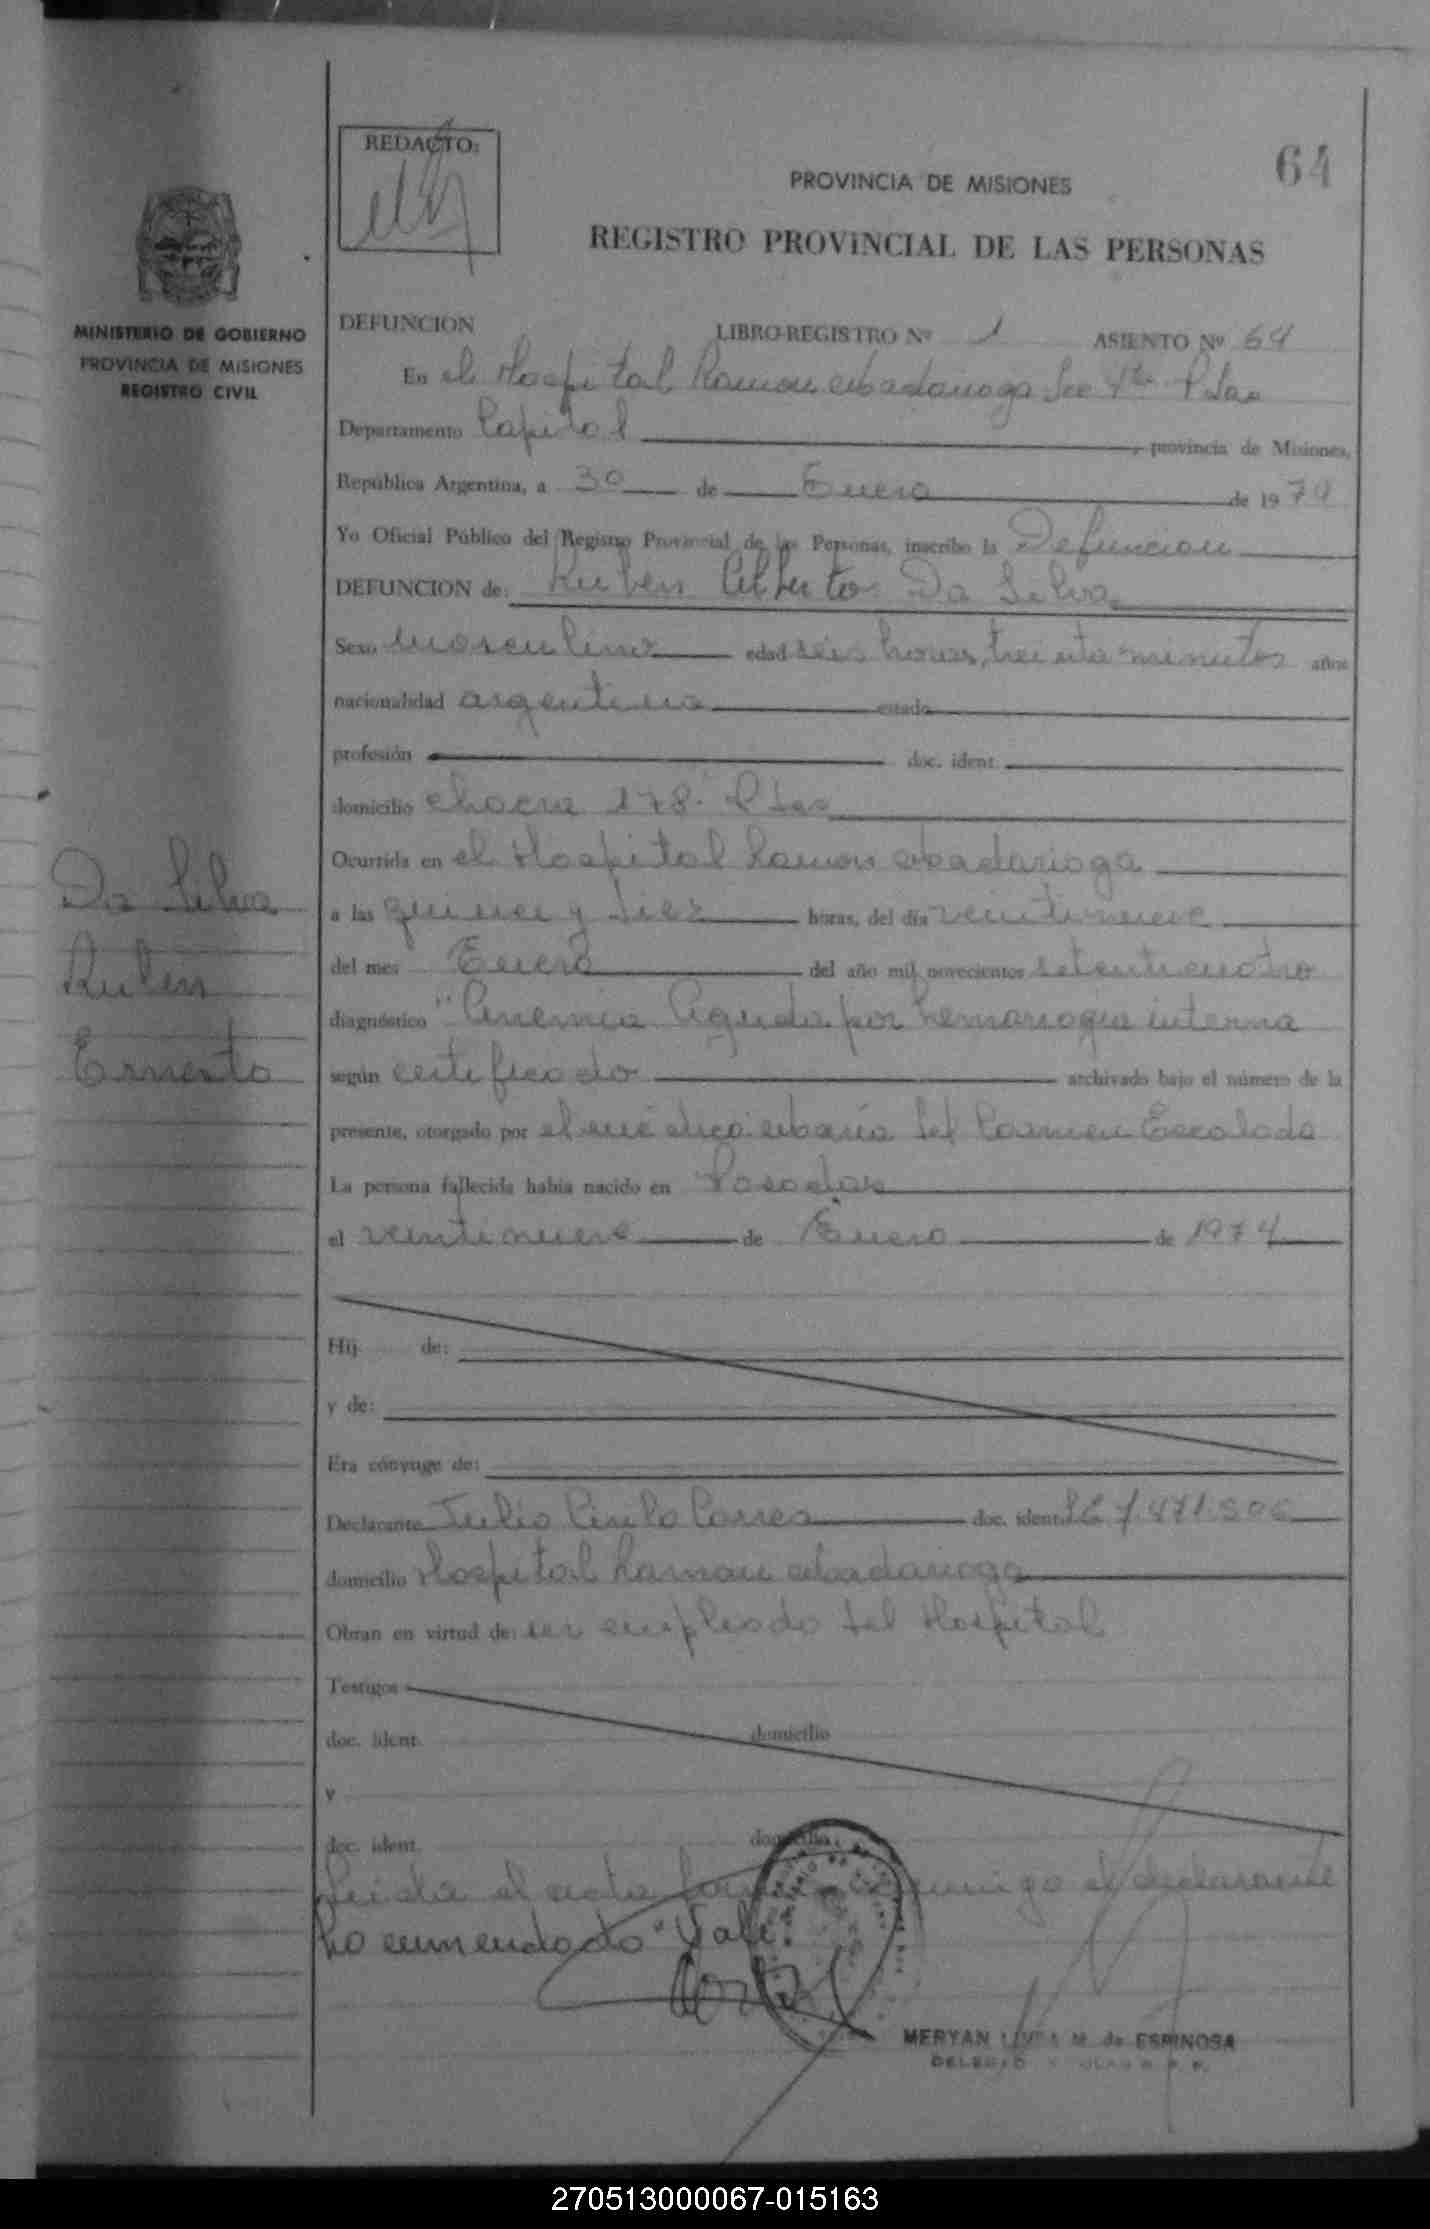 REDACTO:
64
PROVINCIA DE MISIONES
REGISTRO PROVINCIAL DE LAS PERSONAS
MINISTERIO DE GOBIERNO
PROVINCIA DE MISIONES
REGISTRO CIVIL
DEFUNCION LIBRO-REGISTRO Nº 1 ASIENTO Nº 64
En el Hospital Ramon Madariaga
Departamento Capital, provincia de Misiones,
República Argentina, a 30 de Enero de 1974
Yo Oficial Público del Registro Provincial de las Personas, inscribo la Defuncion
DEFUNCION de: Ruben Alberto Da Silva
Sexo masculino edad seis horas, treinta minutos años
nacionalidad argentina estado
profesión doc. ident.
domicilio chacra 178. Pdas
Ocurrida en el Hospital Ramon Madariaga
a las quince y diez horas, del día veintinueve
del mes Enero del año mil novecientos setenticuatro
diagnóstico "Anemia Aguda por hemorragia interna
según certificado archivado bajo el número de la
presente, otorgado por el médico Maria del Carmen Escalada
La persona fallecida había nacido en Posadas
el veintinueve de Enero de 1974
Da Silva
Ruben
Ernesto
Hij de:
y de:
Era cónyuge de:
Declarante Julio Cirilo Correa doc. ident. LE 7.471.506
domicilio Hospital Ramon Madariaga
Obran en virtud de: ser empleado del Hospital
Testigos
doc. ident. domicilio
y
doc. ident. domicilio
Leida el acta conmigo el declarante
Lo enmendado "Vale
MERYAN M. de ESPINOSA
270513000067-015163